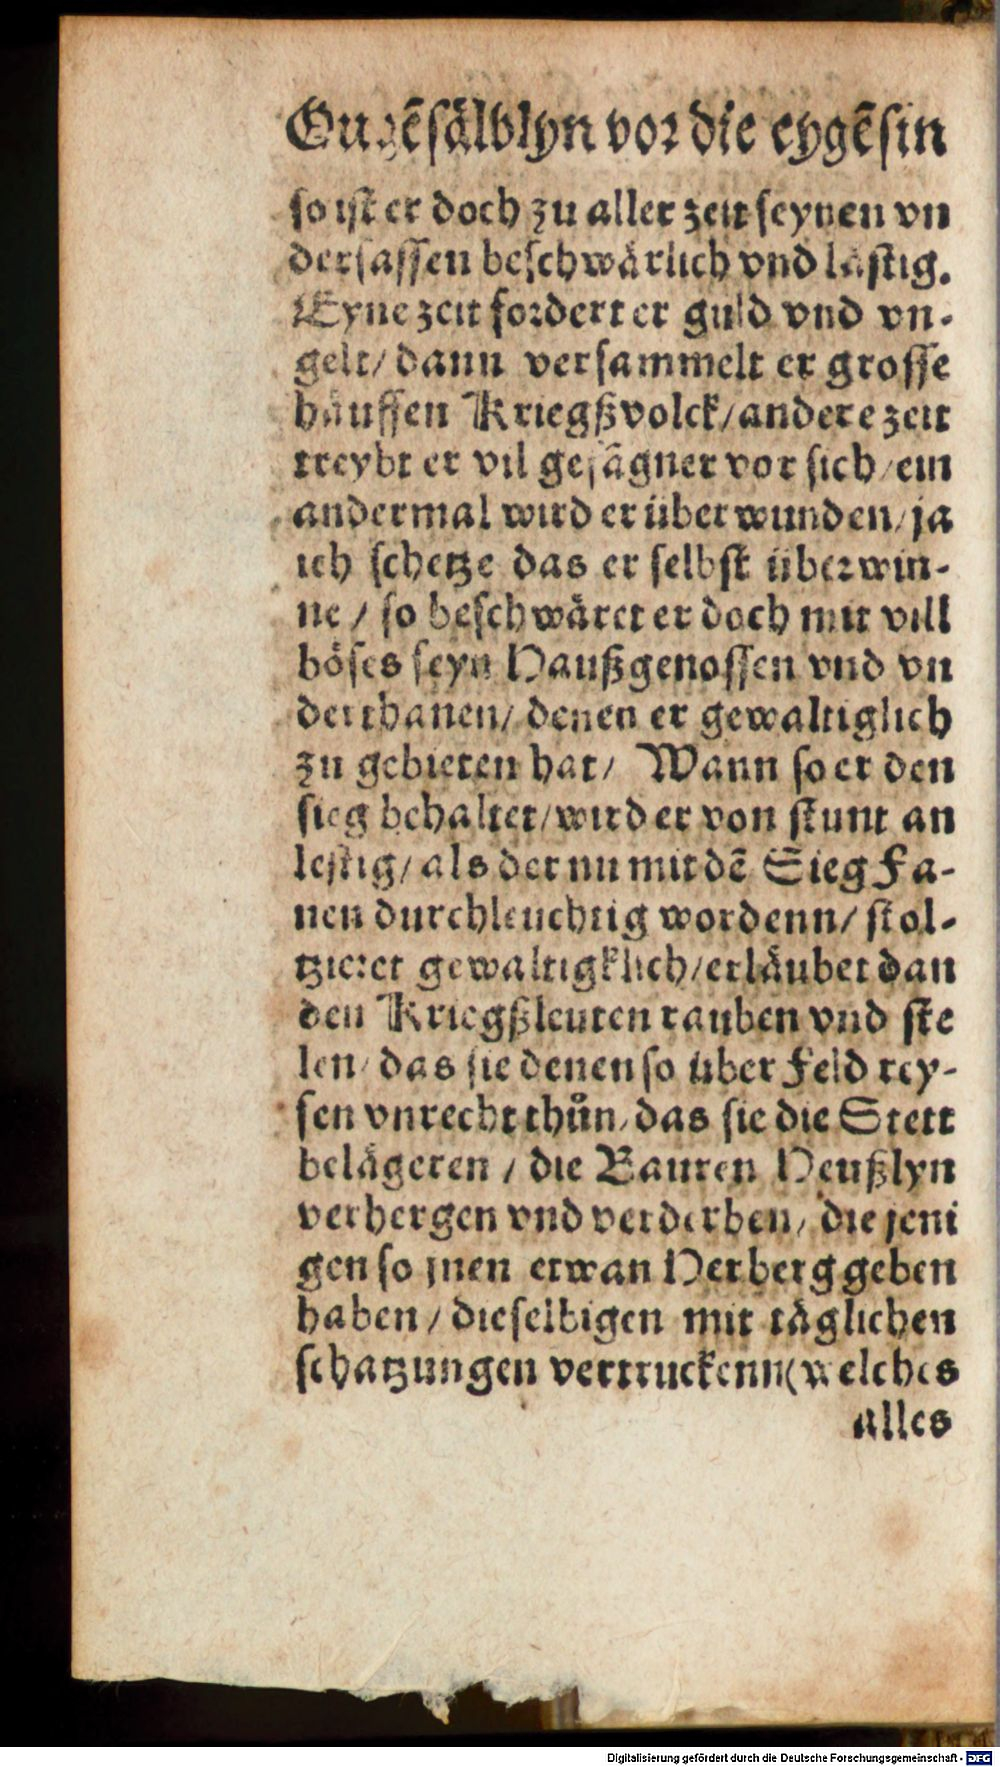 Ougẽsälblyn vor die eygẽsin
so ist er doch zu aller zeit seynen vn
dersassen beschwärlich vnd lästig.
Eyne zeit fordert er guld vnd vn-
gelt/ dann versammelt er grosse
häuffen Kriegßvolck/ andere zeit
treybt er vil gefãgner vor sich/ ein
andermal wird er überwunden/ ja
ich schetze das er selbst überwin-
ne / so beschwäret er doch mit vill
böses seyn Haußgenossen vnd vn
derthanen/ denen er gewaltiglich
zu gebieten hat/ Wann so er den
sieg behaltet/ wird er von stunt an
lestig/ als der nu mit dẽ Sieg Fa-
nen durchleuchtig wordenn/ stol-
tzieret gewaltigklich/ erläubet dan
den Kriegßleuten rauben vnd ste
len/ das sie denen so über Feld rey-
sen vnrecht thůn/ das sie die Stett
belägeren / die Bauren Heußlyn
verhergen vnd verderben/ die jeni
gen so jnen etwan Herberg geben
haben / dieselbigen mit täglichen
schatzungen vertruckenn (welches
alles
Digitalisierung gefördert durch die Deutsche Forschungsgemeinschaft - DFG